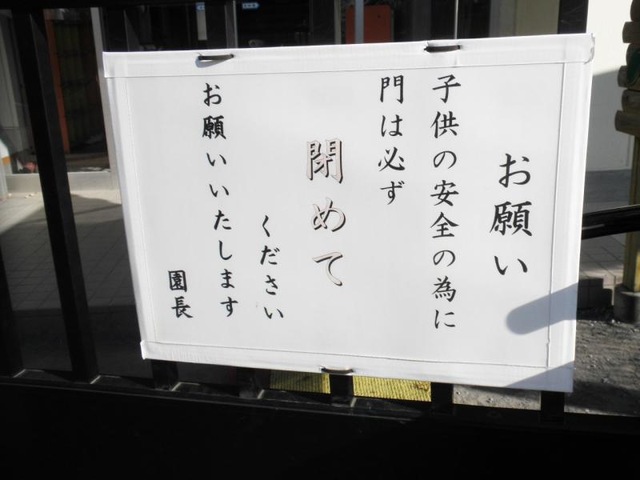 お願い
子供の安全の為に
門は必ず
閉めて
ください
お願いいたします
園長